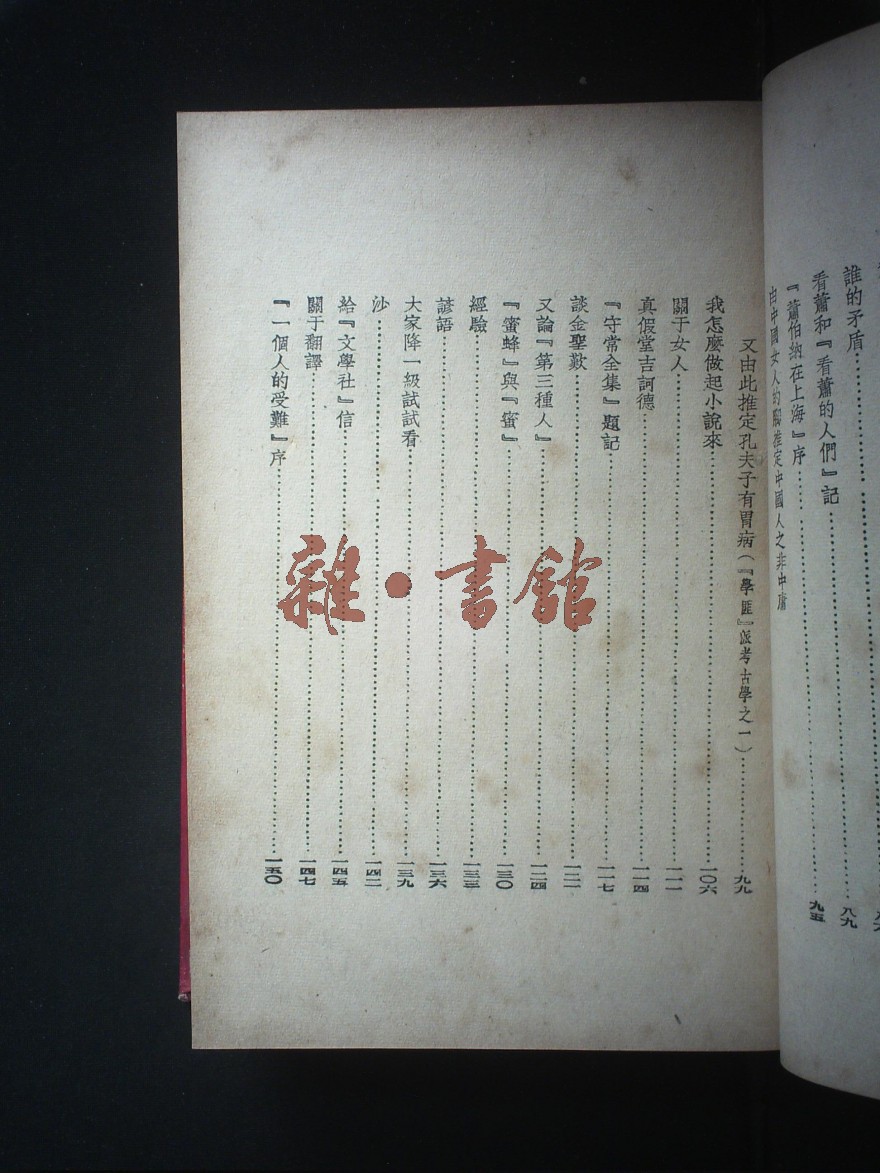 誰的矛盾
八九
看蕭和『看蕭的人們』記
九五
『蕭伯納在上海』序
由中國女人的腳推定中國人之非中庸
又由此推定孔夫子有胃病(『學匪』派考古學之一)
九九
我怎麼做起小說來
一〇六
關于女人
一一一
真假堂吉訶德
一一四
『守常全集』題記
一一七
談金聖歎
一二一
又論『第三種人』
一二四
『蜜蜂』與『蜜』
一三〇
經驗
一三三
諺語
一三六
大家降一級試試看
一三九
沙
一四二
給『文學社』信
一四五
關于翻譯
一四七
『一個人的受難』序
一五〇
雜·書館